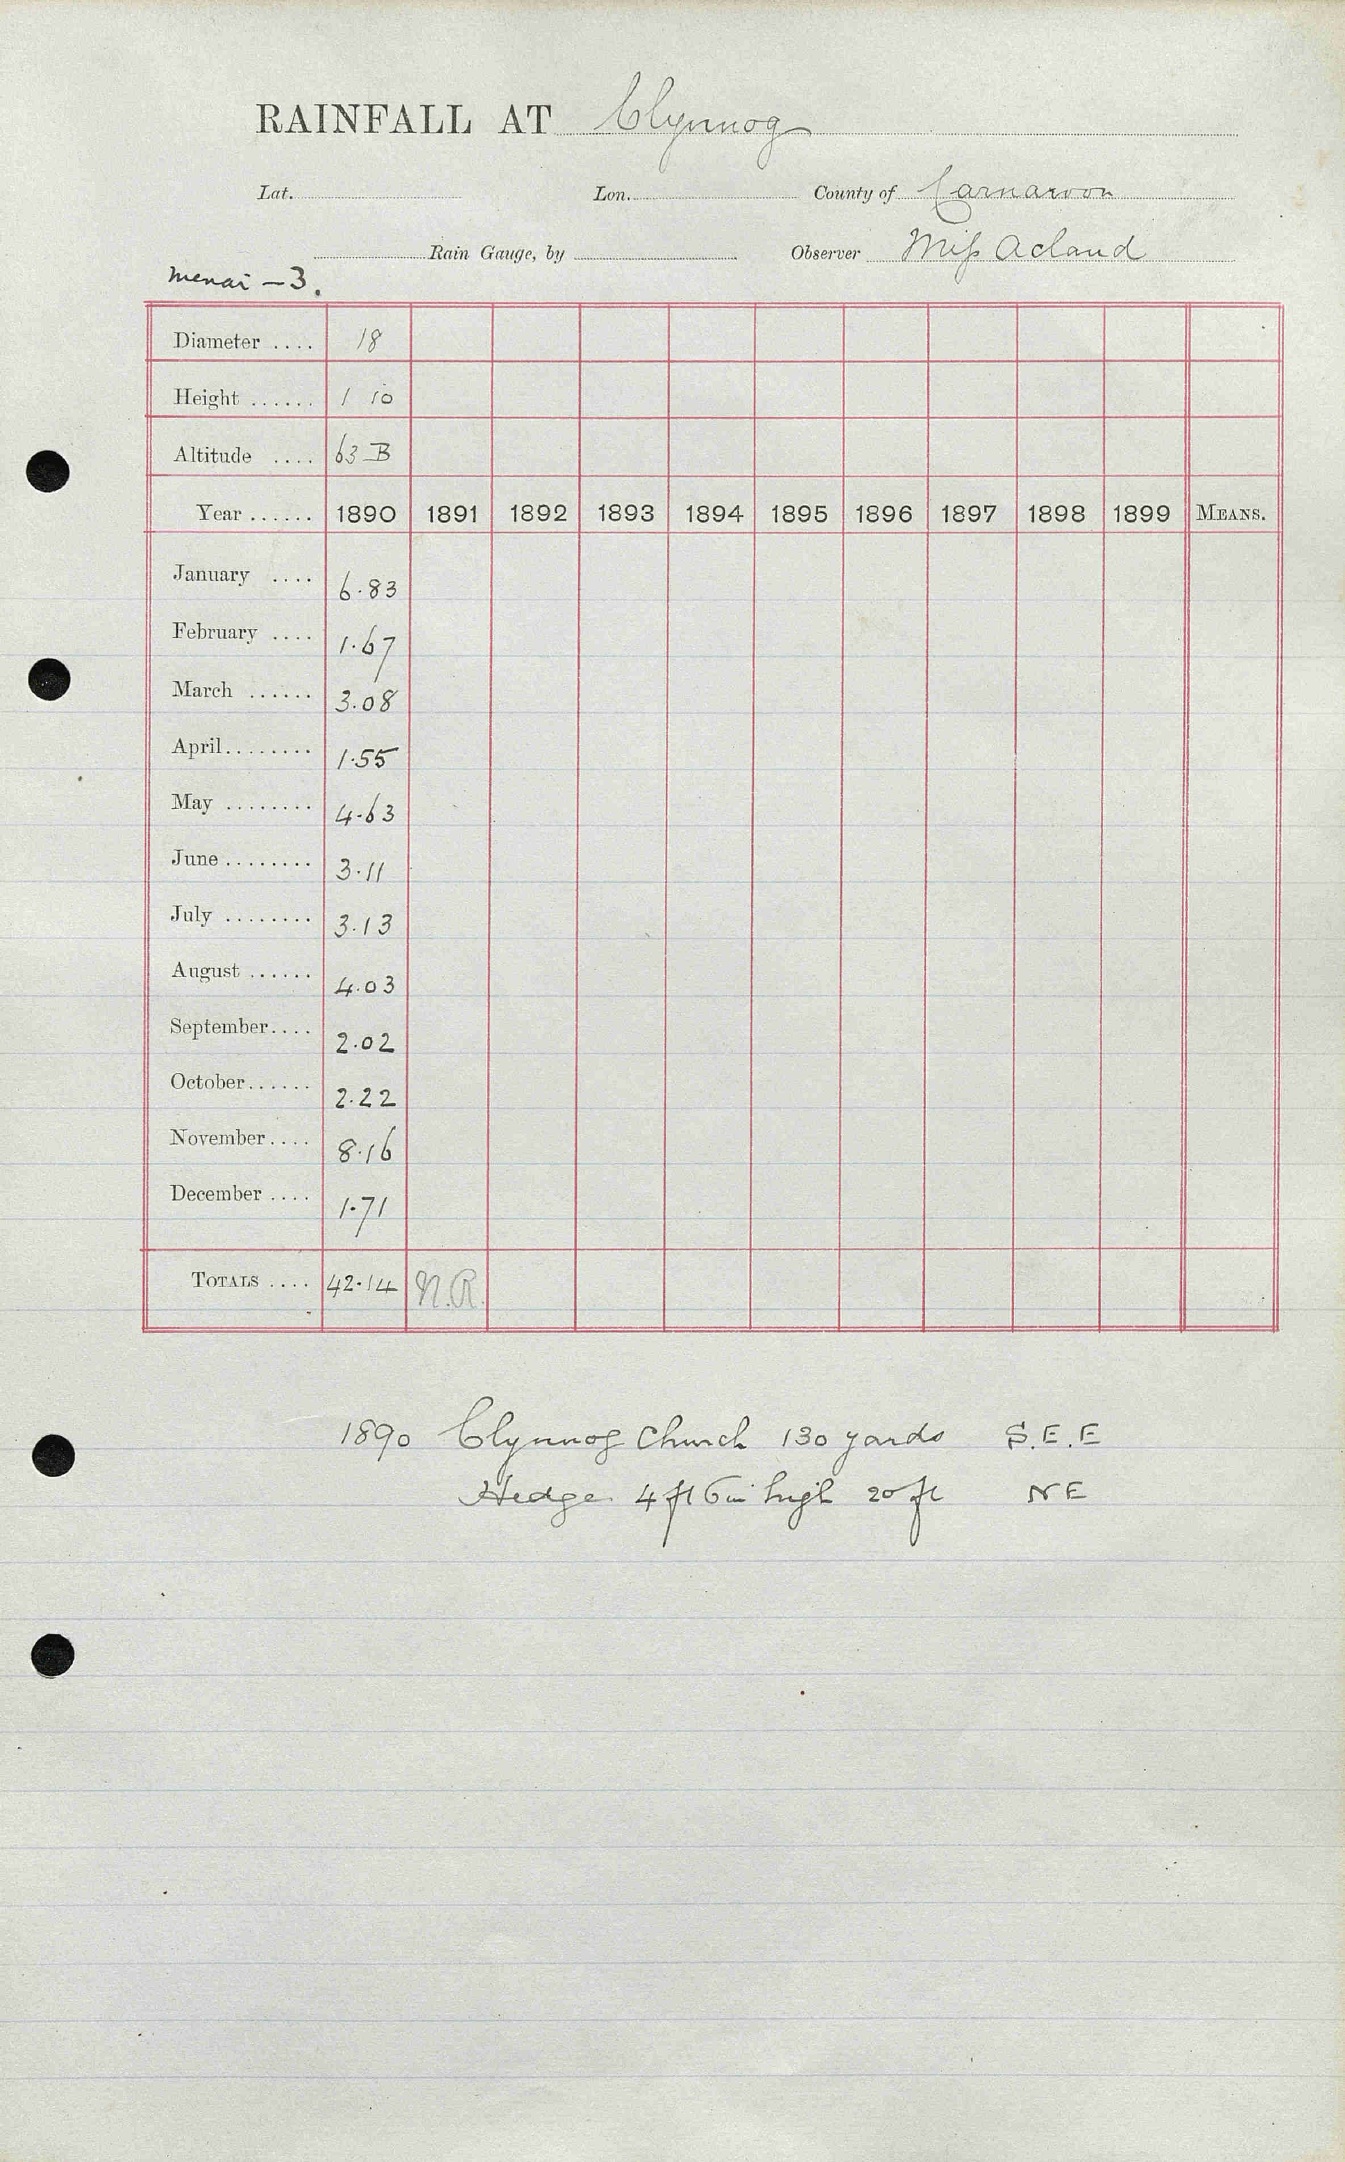 RAINFALL AT Clynnog
Lat. Lon. County of Carnarvon
Rain Gauge, by Observer Miss Acland
Menai - 3.
Diameter .... 18
Height ...... 1 10
Altitude .... 63 B
Year ...... 1890 1891 1892 1893 1894 1895 1896 1897 1898 1899 MEANS.
January .... 6.83
February .... 1.67
March ...... 3.08
April........ 1.55
May ........ 4.63
June ........ 3.11
July ........ 3.13
August ...... 4.03
September.... 2.02
October...... 2.22
November.... 8.16
December .... 1.71
TOTALS .... 42.14 N.R.
1890 Clynnog Church 130 yards S.E.E
Hedge 4 ft 6 in high 20 ft NE